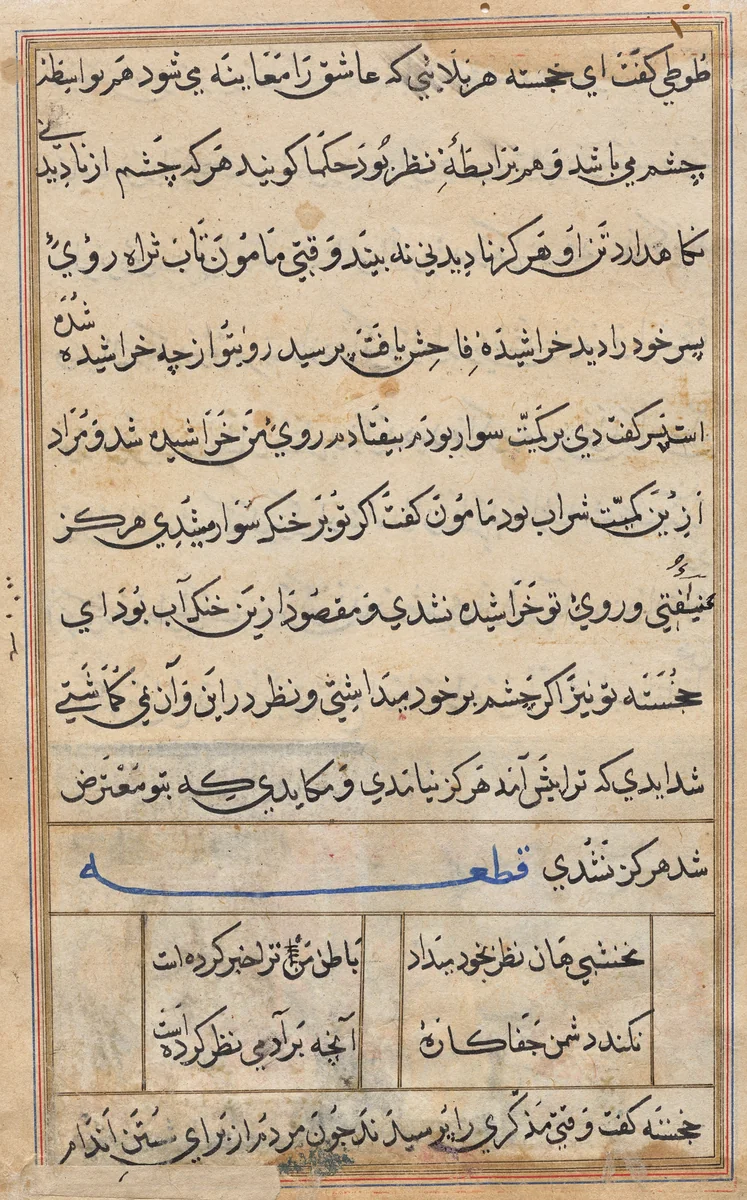 طوطي كفت اي خجسته هر بلائي كه عاشق را معاينه مي شود هم بواسطه
چشم مي باشد و هم برابطۀ نظر بود حكما كويند هركه چشم از ناديدني
نكاهدارد تن او هركز ناديدني نه بيند وقتي مامون تاب ثراه روئ
پسر خود را ديد خراشيده فاحش يافت پرسيد روئتو از چه خراشيده شده
است پسر كفت دي بر كميت سوار بودم بيفتادم روئ من خراشيده شد و مراد
ازين كميت شراب بود مامون كفت اكر تو بر خنك سوار ميشدي هركز
نيفتي وروئ تو خراشيده نشدي و مقصود ازين خنك آب بود اي
خجسته تو نيز اكر چشم بر خود ميداشتي و نظر در اين و آن نمي كماشتي
شدايدي كه ترا پيش آمد هركز نيامدي و مكايدي كه بتو معترض
شد هركز نشدي قطعه
نخشبي هان نظر بخود ميدار باطن من ترا خبر كرده است
نكند دشمن جفا كاره آنچه بر آدمي نظر كرده است
خجسته كفت وقتي مذكري را پرسيدند چون مردم از براي شستن اندام